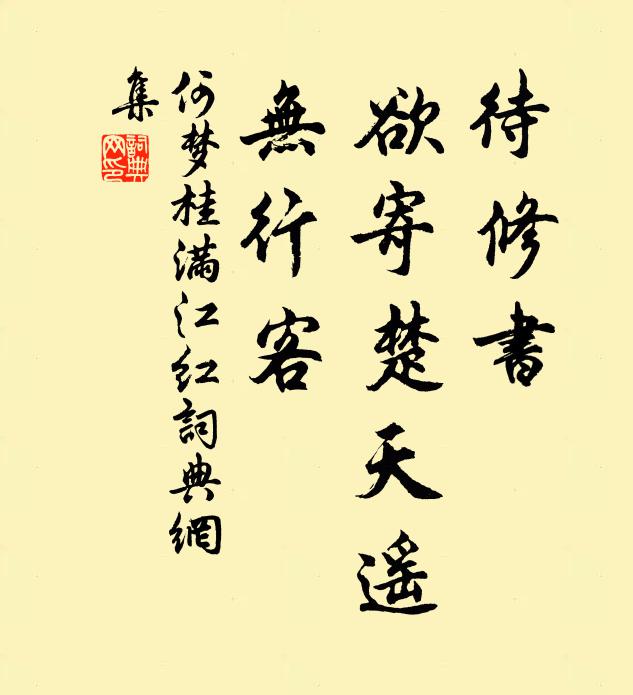 待修書
欲寄楚天遥
無行客
何梦桂满江红詞典網
集
詞典
网印